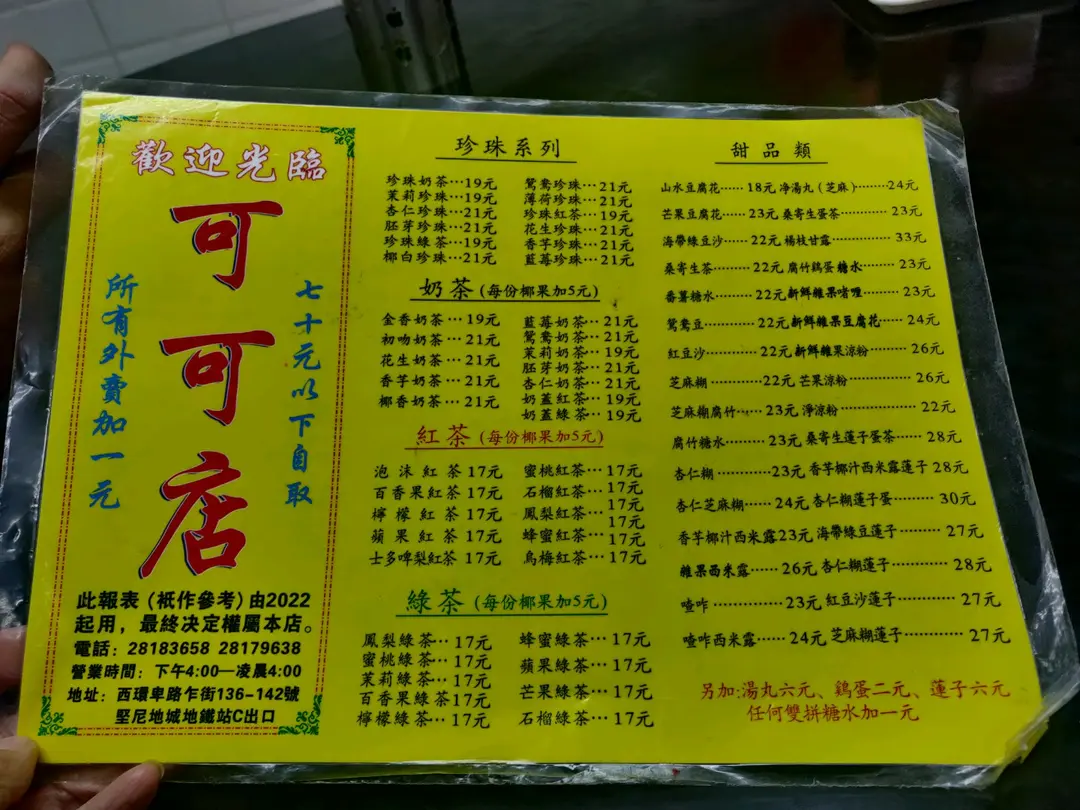 歡迎光臨
可可店
七十元以下自取
所有外賣加一元
此報表（衹作參考）由2022
起用，最終决定權屬本店。
電話：28183658 28179638
營業時間：下午4:00—凌晨4:00
地址：西環卑路乍街136-142號
堅尼地城地鐵站C出口
珍珠系列
珍珠奶茶…19元 鴛鴦珍珠…21元
茉莉珍珠…19元 薄荷珍珠…21元
杏仁珍珠…21元 珍珠紅茶…19元
胚芽珍珠…21元 花生珍珠…21元
珍珠綠茶…19元 香芋珍珠…21元
椰白珍珠…21元 藍莓珍珠…21元
奶茶（每份椰果加5元）
金香奶茶…19元
初吻奶茶…21元
花生奶茶…21元
香芋奶茶…21元
椰香奶茶…21元
藍莓奶茶…21元
鴛鴦奶茶…21元
茉莉奶茶…19元
胚芽奶茶…21元
杏仁奶茶…21元
奶蓋紅茶…19元
奶蓋綠茶…19元
紅茶（每份椰果加5元）
泡沫紅茶 17元 蜜桃紅茶…17元
百香果紅茶 17元 石榴紅茶…17元
檸檬紅茶 17元 鳳梨紅茶…17元
蘋果紅茶 17元 蜂蜜紅茶…17元
士多啤梨紅茶 17元 烏梅紅茶…17元
綠茶（每份椰果加5元）
鳳梨綠茶…17元
蜜桃綠茶…17元
茉莉綠茶…17元
百香果綠茶 17元
檸檬綠茶…17元
蜂蜜綠茶…17元
蘋果綠茶…17元
芒果綠茶…17元
石榴綠茶…17元
甜品類
山水豆腐花……18元 净湯丸（芝麻）………24元
芒果豆腐花……23元 桑寄生蛋茶…………23元
海帶綠豆沙……22元 楊枝甘露…………33元
桑寄生茶………22元 腐竹鷄蛋糖水………23元
番薯糖水………22元 新鮮雜果啫喱………23元
鴛鴦豆…………22元 新鮮雜果豆腐花……24元
紅豆沙…………22元 新鮮雜果涼粉………26元
芝麻糊…………22元 芒果涼粉…………26元
芝麻糊腐竹……23元 淨涼粉……………22元
腐竹糖水………23元 桑寄生蓮子蛋茶……28元
杏仁糊…………23元 香芋椰汁西米露蓮子 28元
杏仁芝麻糊……24元 杏仁糊蓮子蛋………30元
香芋椰汁西米露23元 海帶綠豆蓮子………27元
雜果西米露……26元 杏仁糊蓮子…………28元
喳咋……………23元 紅豆沙蓮子…………27元
喳咋西米露……24元 芝麻糊蓮子…………27元
另加:湯丸六元、鷄蛋二元、蓮子六元
任何雙拼糖水加一元